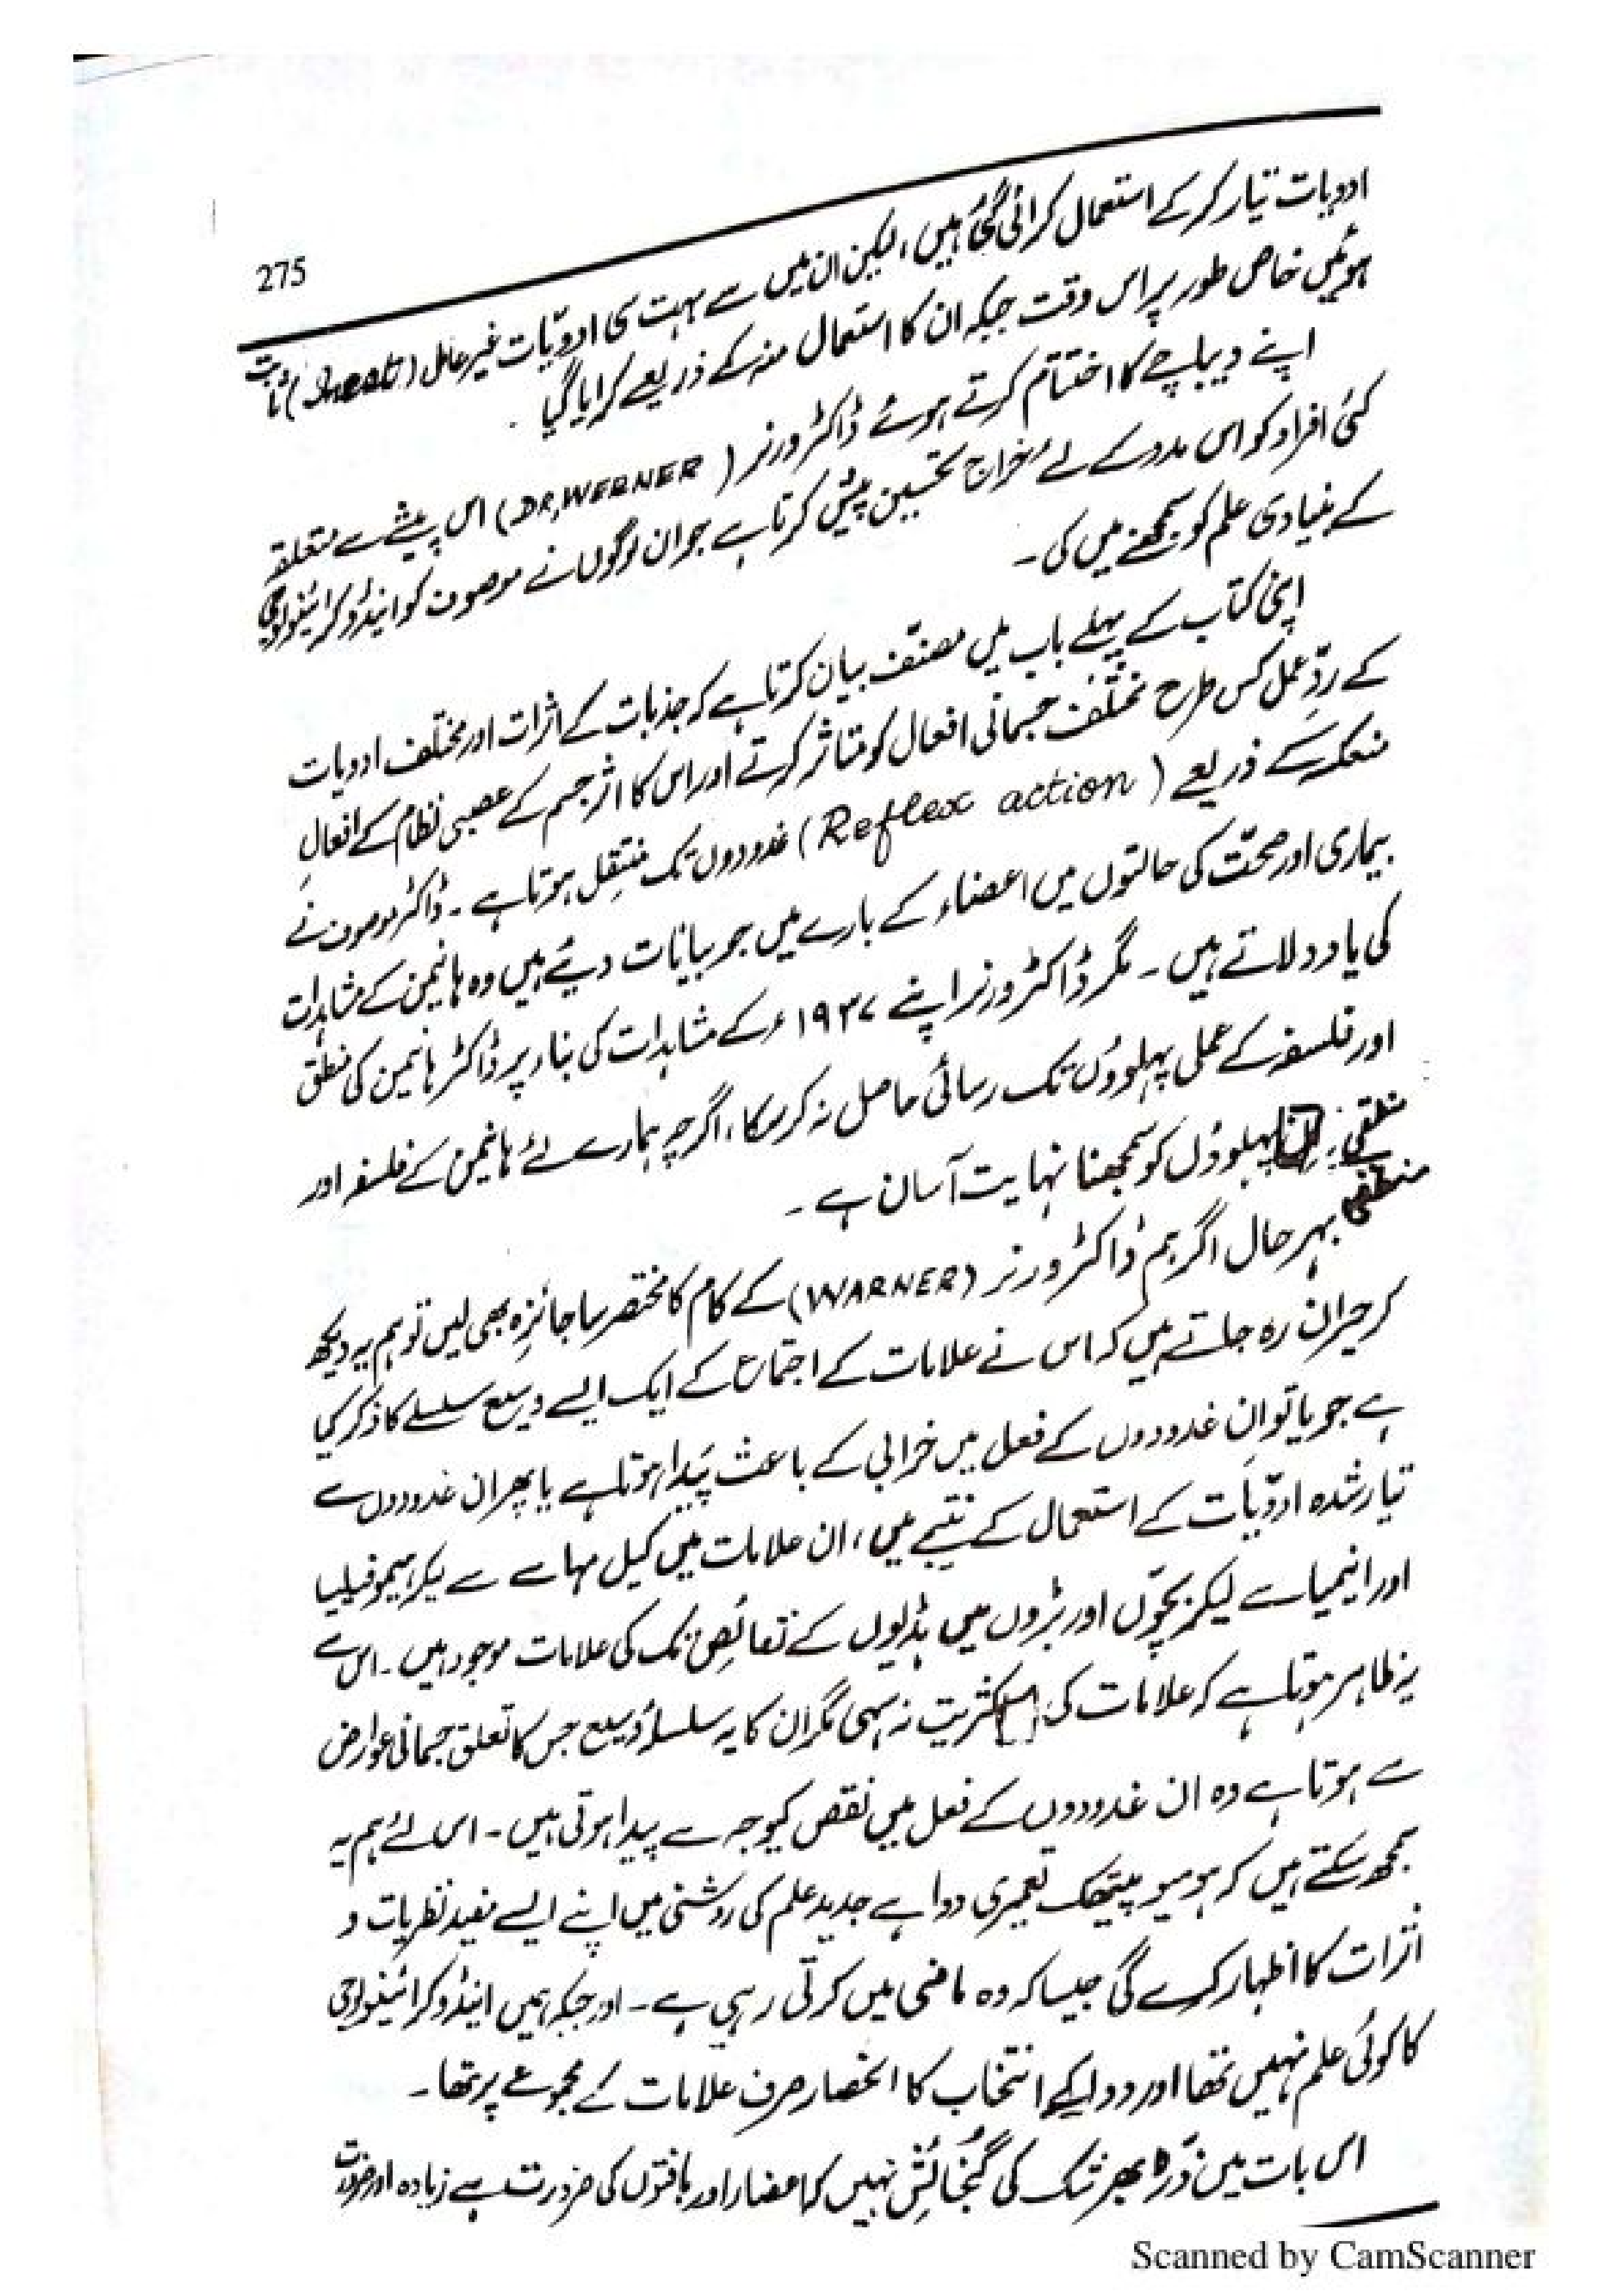 275
ادویات تیار کرکے استعمال کرائی گئی ہیں، لیکن ان میں سے بہت سی ادویّات غیر عامل (Inert) ثابت
ہوئیں خاص طور پر اس وقت جبکہ ان کا استعمال منہ کے ذریعے کرایا گیا۔
اپنے دیباچے کا اختتام کرتے ہوئے ڈاکٹر ورنر (DR, WERNER) اس پیشے سے متعلقہ
کئی افراد کو اس مدد کے لئے خراج تحسین پیش کرتا ہے جو ان لوگوں نے موصوف کو اینڈوکرائینولوجی
کے بنیادی علم کو سمجھنے میں کی۔
اپنی کتاب کے پہلے باب میں مصنّف بیان کرتا ہے کہ جذبات کے اثرات اور مختلف ادویات
کے ردِّ عمل کس طرح مختلف جسمانی افعال کو متاثر کرتے اور اس کا اثر جسم کے عصبی نظام کے افعالِ
منعکسہ کے ذریعے (Reflex action) غدودوں تک منتقِل ہوتا ہے۔ ڈاکٹر موصوف نے
بیماری اور صحّت کی حالتوں میں اعضاء کے بارے میں جو بیانات دیئے ہیں وہ ہانیمن کے مشاہدات
کی یاد دلاتے ہیں۔ مگر ڈاکٹر ورنر اپنے ۱۹۳۷ء کے مشاہدات کی بناء پر ڈاکٹر ہانیمن کی منطق
اور فلسفہ کے عملی پہلوؤں تک رسائی حاصل نہ کر سکا، اگرچہ ہمارے لئے ہانیمن کے فلسفہ اور
منطقی پہلوؤں کو سمجھنا نہایت آسان ہے۔
منطقی
بہر حال اگر ہم ڈاکٹر ورنر (WARNER) کے کام کا مختصر سا جائزہ بھی لیں تو ہم یہ دیکھ
کر حیران رہ جاتے ہیں کہ اس نے علامات کے اجتماع کے ایک ایسے وسیع سلسلے کا ذکر کیا
ہے جو یا تو ان غدودوں کے فعل میں خرابی کے باعث پَیدا ہوتا ہے یا پھر ان غدودوں سے
تیار شدہ ادویّات کے استعمال کے نتیجے میں، ان علامات میں کیل مہاسے سے لیکر ہیموفیلیا
اور انیمیا سے لیکر بچّوں اور بڑوں میں ہڈیوں کے نقائص تک کی علامات موجود ہیں۔ اس سے
یہ ظاہر ہوتا ہے کہ علامات کی اکثریت نہ سہی مگر ان کا یہ سلسلۂ وسیع جس کا تعلق جسمانی عوارض
سے ہوتا ہے وہ ان غدودوں کے فعل میں نقص کیوجہ سے پیدا ہوتی ہیں۔ اس لئے ہم یہ
سمجھ سکتے ہیں کہ ہومیوپیتھک تعمیری دوا ہے جدید علم کی روشنی میں اپنے ایسے مفید نظریات و
اثرات کا اظہار کرے گی جیسا کہ وہ ماضی میں کرتی رہی ہے۔ اور جبکہ ہمیں اینڈوکرائینولوجی
کا کوئی علم نہیں تھا اور دوا کے انتخاب کا انحصار صرف علامات کے مجموعے پر تھا۔
اس بات میں ذرّہ بھر شک کی گُنجائش نہیں کہ اعضاء اور بافتوں کی ضرورت سے زیادہ اور ضرورت
Scanned by CamScanner